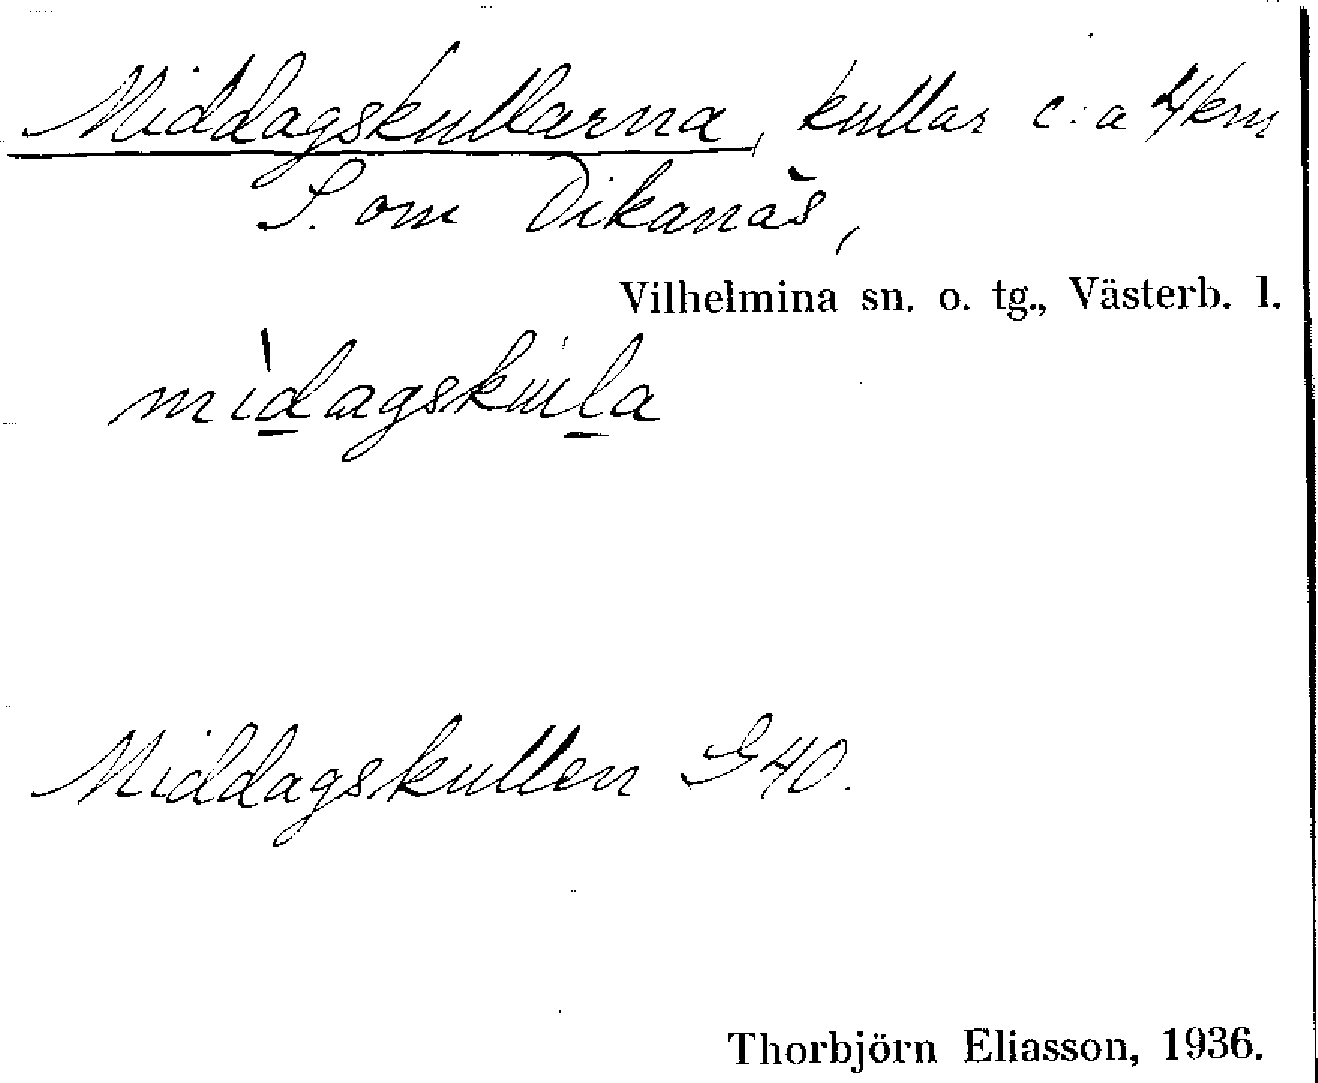 Middagskullarna, kullar c:a 4 km
S. om Dikanäs,
Vilhelmina sn. o. tg., Västerb. l.
Middagskullen G 40.
Thorbjörn Eliasson, 1936.